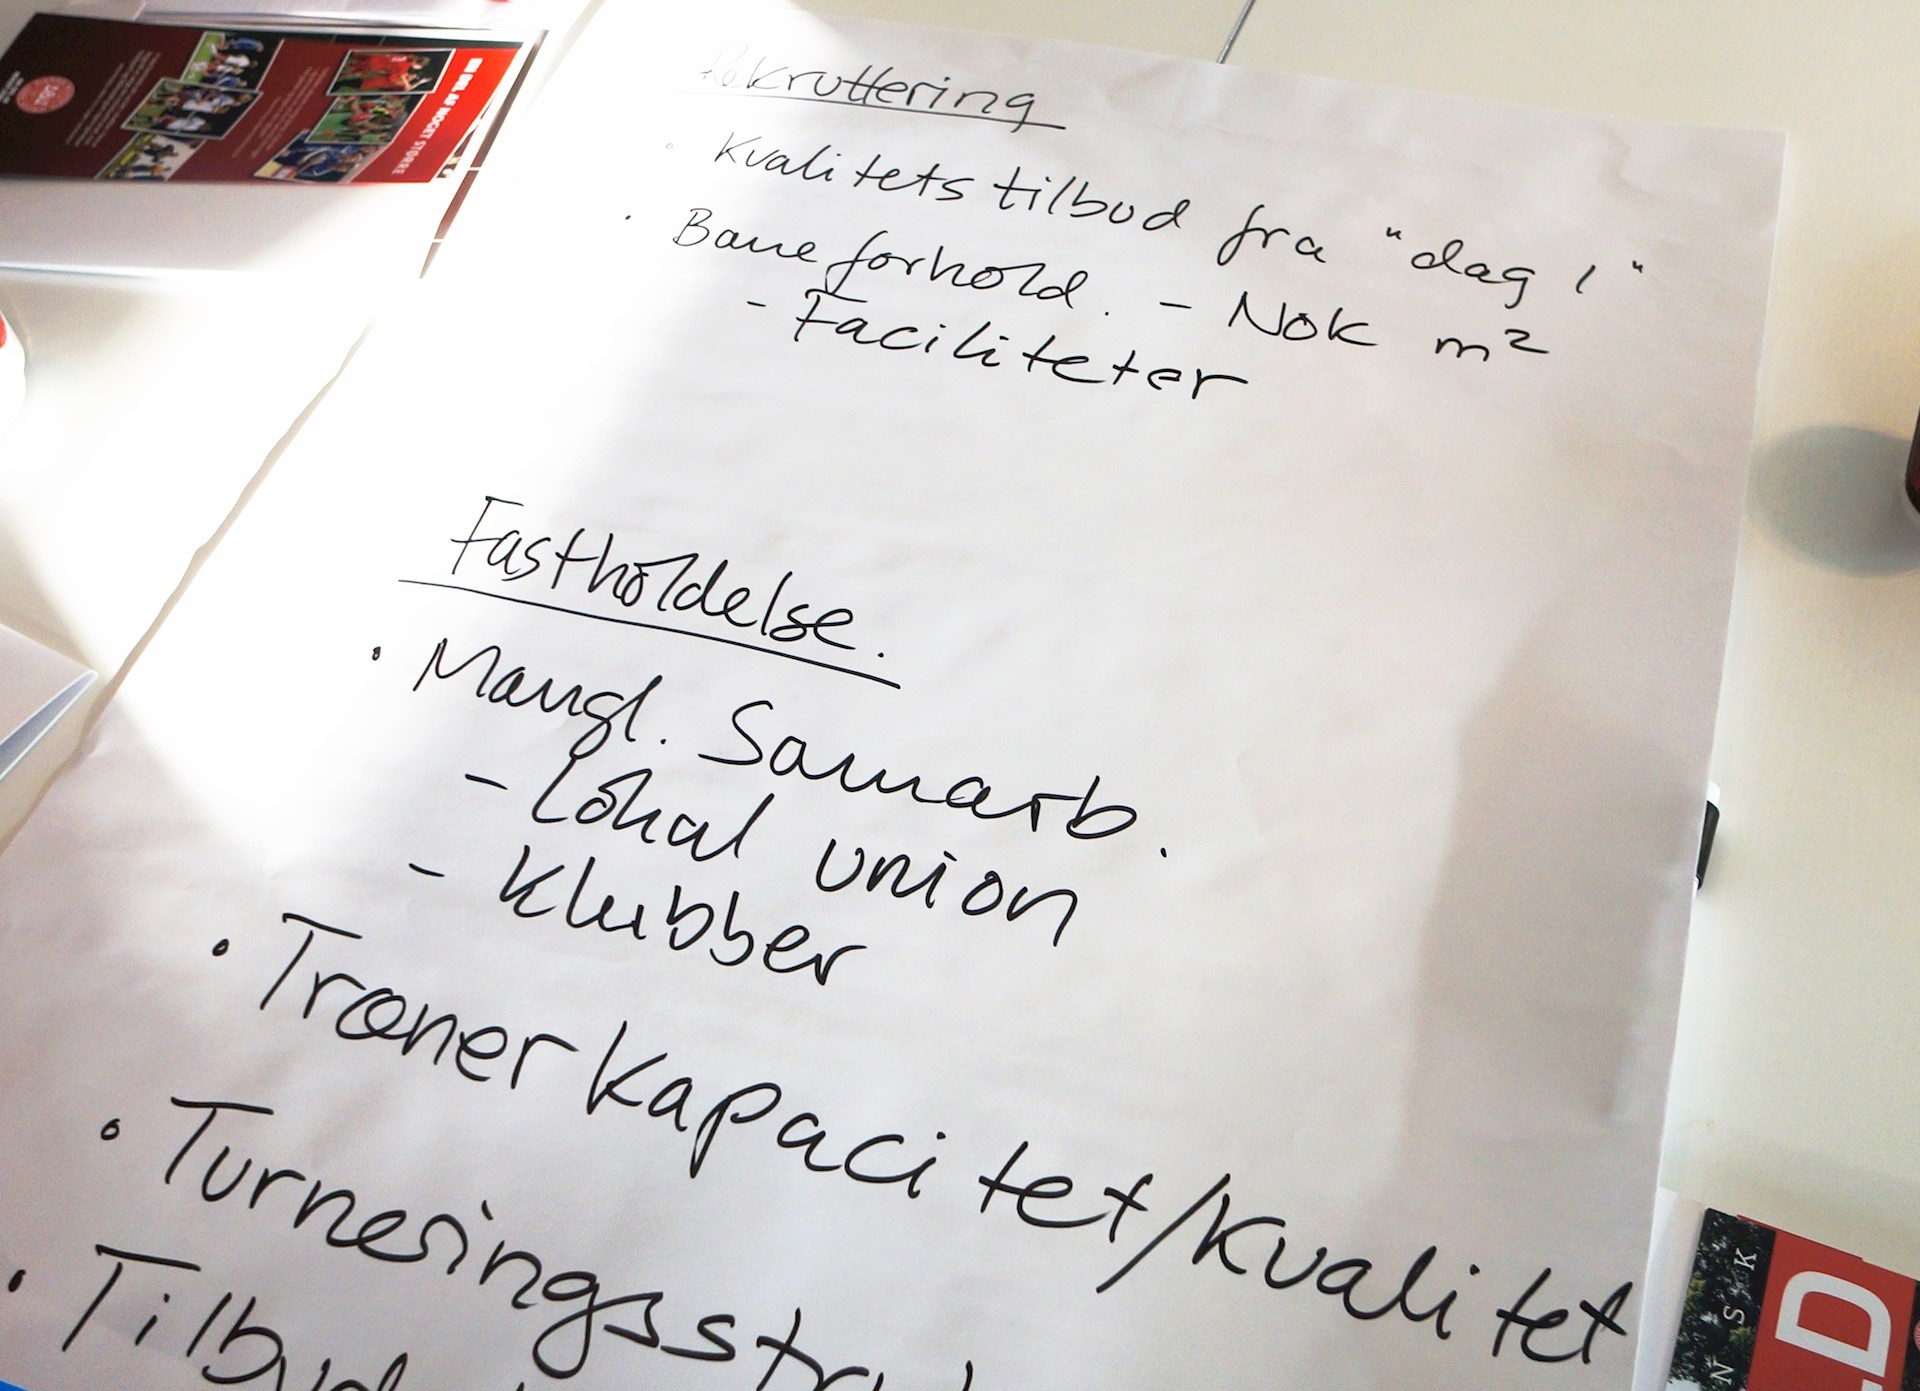 Rekruttering
· Kvalitetstilbud fra "dag 1"
· Baneforhold. - Nok m²
- Faciliteter
Fastholdelse.
· Mangl. Samarb.
- Lokal union
- Klubber
· Trænerkapacitet/kvalitet
· Turneringsstru
· Tilbud
EN DEL AF NOGET STØRRE
NSK
D